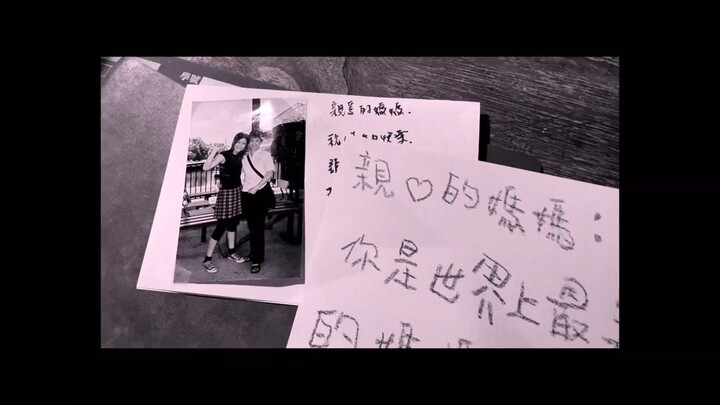 學號
親愛的媽媽.
親♡的媽媽:
你是世界上最
的媽